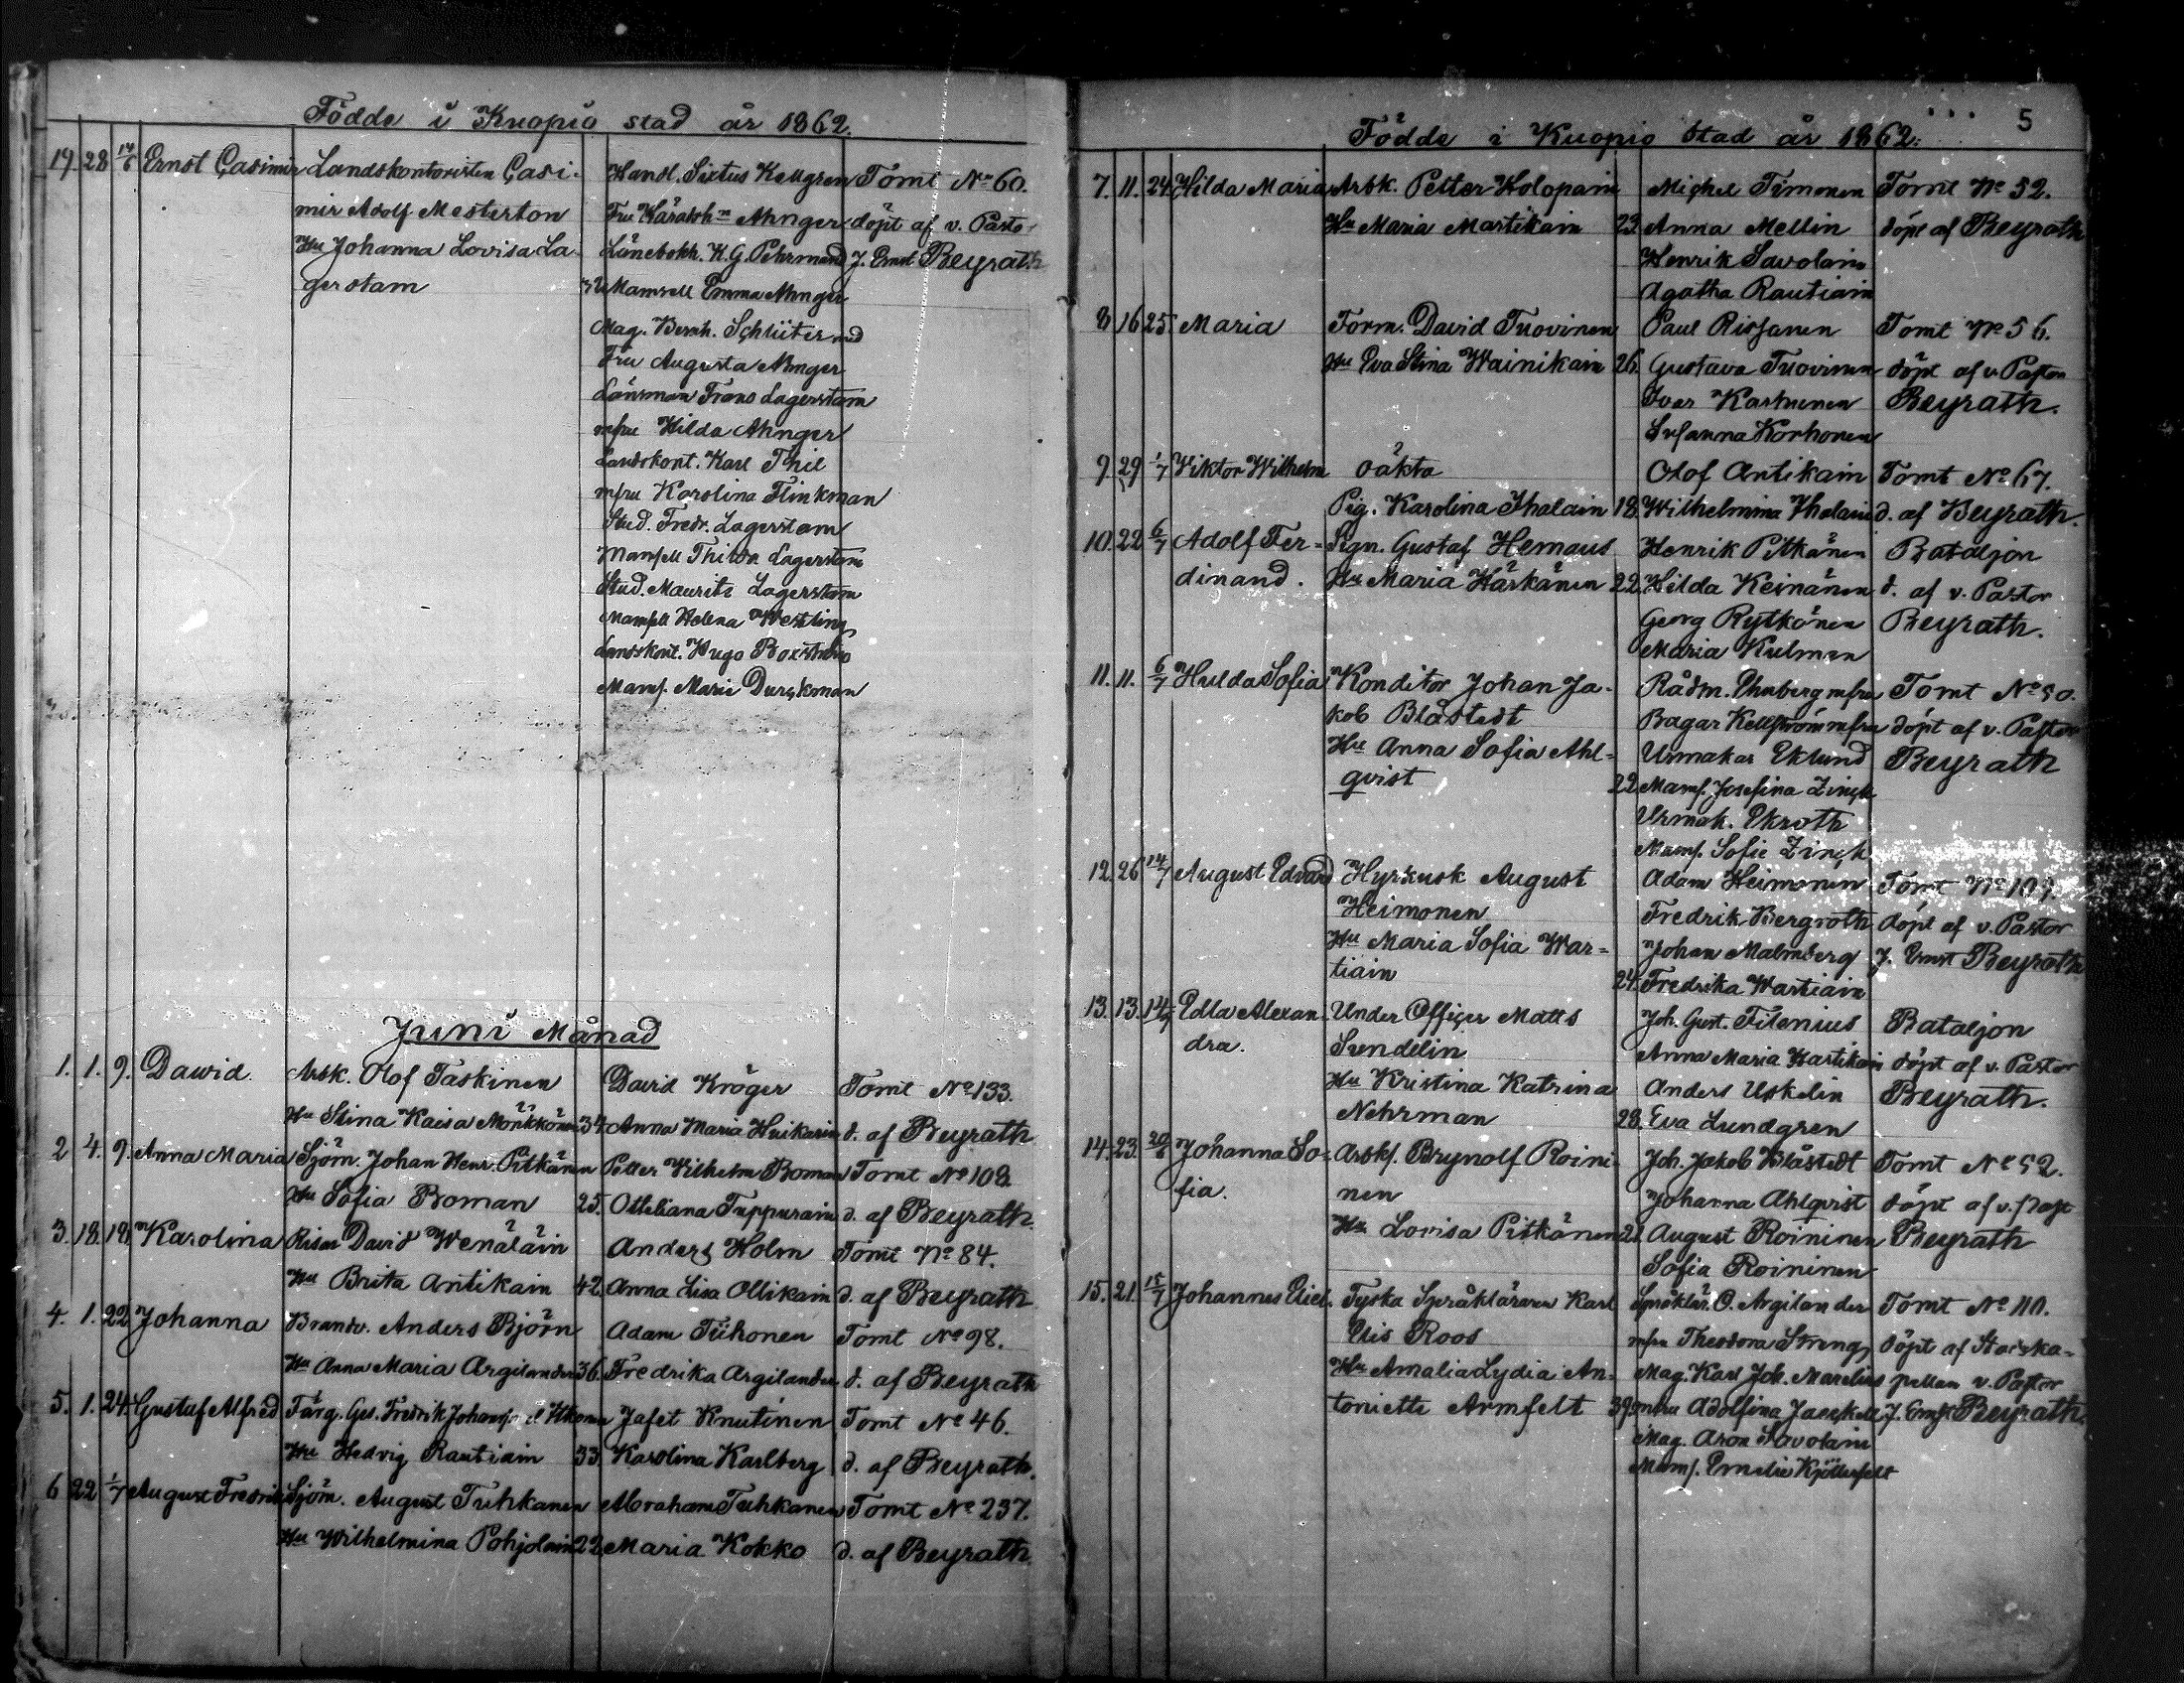 Födde i Kuopio stad år 1862.
19. 28 14/6 Ernst Casimir Landskontoristen Casi- Handl. Sixtus Kellgren Tomt No 60.
mir Adolf Mesterton Fru Ahnger döpt af v. Pasto-
Hu Johanna Lovisa La- Länebokh. K. G. Pehrman J. Ernst Beyrath
gerstam Mamsell Emma Ahnger
Mag. Bernh. Schlüter med
Fru Augusta Ahnger
Länsman Frans Lagerstam
mfru Hilda Ahnger
Landskont. Karl Thil
mfru Karolina Flinkman
Stud. Fredr. Lagerstam
Mamsell Thilda Lagerstam
Stud. Maurits Lagerstam
Mamsell Helena Westling
Landskont. Hugo
Mams. Marie
Juni Månad
1. 1. 9. Dawid Arbk. Olof Taskinen David Kröger Tomt No 133.
Hu Stina Kaisa Mönkkönen 34. Anna Maria Huikarin d. af Beyrath
2 4. 9. Anna Maria Sjöm. Johan Henr. Pitkänen Petter Wilhelm Boman Tomt No 108.
Hu Sofia Boman 25. Otteliana Tuppurain d. af Beyrath.
3. 18. 18. Karolina David Wenäläin Anders Holm Tomt No 84.
Hu Brita Antikain 42. Anna Lisa Ollikain d. af Beyrath
4. 1. 22. Johanna Brandv. Anders Björn Adam Tiihonen Tomt No 98.
Hu Anna Maria Argilander 36. Fredrika Argilander d. af Beyrath
5. 1. 24. Gustaf Alfred Färg. Ges. Fredrik Jafet Knutinen Tomt No 46.
Hu Hedvig Rautiain 33. Karolina Karlberg d. af Beyrath.
6 22 1/7 August Fredrik Sjöm. August Tuhkanen Abraham Tuhkanen Tomt No 237.
Hu Wilhelmina Pohjolain 22. Maria Kokko d. af Beyrath.
5
Födde i Kuopio Stad år 1862.
7. 11. 24. Hilda Maria Arbk. Petter Holopain Michel Timonen Tomt No 52.
Hu Maria Martikain 23. Anna Mellin döpt af Beyrath
Henrik Savolain
Agatha Rautiain
8 16 25. Maria Form. David Tuovinen Paul Rissanen Tomt No 56.
Hu Eva Stina Wainikain 26. Gustava Tuovinen döpt af v. Pastor
Ivar Karhunen Beyrath.
Susanna Korhonen
9. 29 1/7 Viktor Wilhelm oäkta Olof Antikain Tomt No 67.
Pig. Karolina Ihalain 18. Wilhelmina Ihalain d. af Beyrath.
10. 22 6/7 Adolf Fer- Sign. Gustaf Hemaus Henrik Pitkänen Bataljon
dinand. Hu Maria Härkänen 22. Hilda Keinänen d. af v. Pastor
Georg Rytkönen Beyrath.
Maria Kulman
11. 11. 6/7 Hulda Sofia Konditor Johan Ja- Rådm. Ehnberg mfru Tomt No 50.
kob Blåstedt Bagar Kellström mfru döpt af v. Pastor
Hu Anna Sofia Ahl- Urmakar Eklund Beyrath
qvist 22. Mams. Josefina Zinck
Urmak. Ekroth
Mams. Sofie Zinck
12. 26 14/7 August Edvard Hyrkusk August Adam Heimonen Tomt No
Heimonen Fredrik Bergroth döpt af v. Pastor
Hu Maria Sofia War- Johan Malmberg J. Ernst Beyrath
tiain 24. Fredrika Wartiain
13. 13. 14/7 Edla Alexan- Under Officer Matts Joh. Gust. Filenius Bataljon
dra. Sundelin Anna Maria döpt af v. Pastor
Hu Kristina Katrina Anders Uskelin Beyrath.
Nehrman 28. Eva Lundgren
14. 23. 20/6 Johanna So- Arbk. Brynolf Roini- Joh. Jakob Blåstedt Tomt No 52.
fia. nen Johanna Ahlqvist döpt af v. Past
Hu Lovisa Pitkänen August Roininen Beyrath
Sofia Roininen
15. 21. 15/7 Johannes Eliel. Tyska Språkläraren Karl Språklär. O. Argilander Tomt No 110.
Elis Roos mfru Theodora Streng döpt af Storka-
Hu Amalia Lydia An- Mag. Karl Joh. Marelius pellan v. Pastor
toniette Armfelt 39. mfru Adolfina J. Ernst Beyrath.
Mag. Aron Savolain
Mams. Emelie